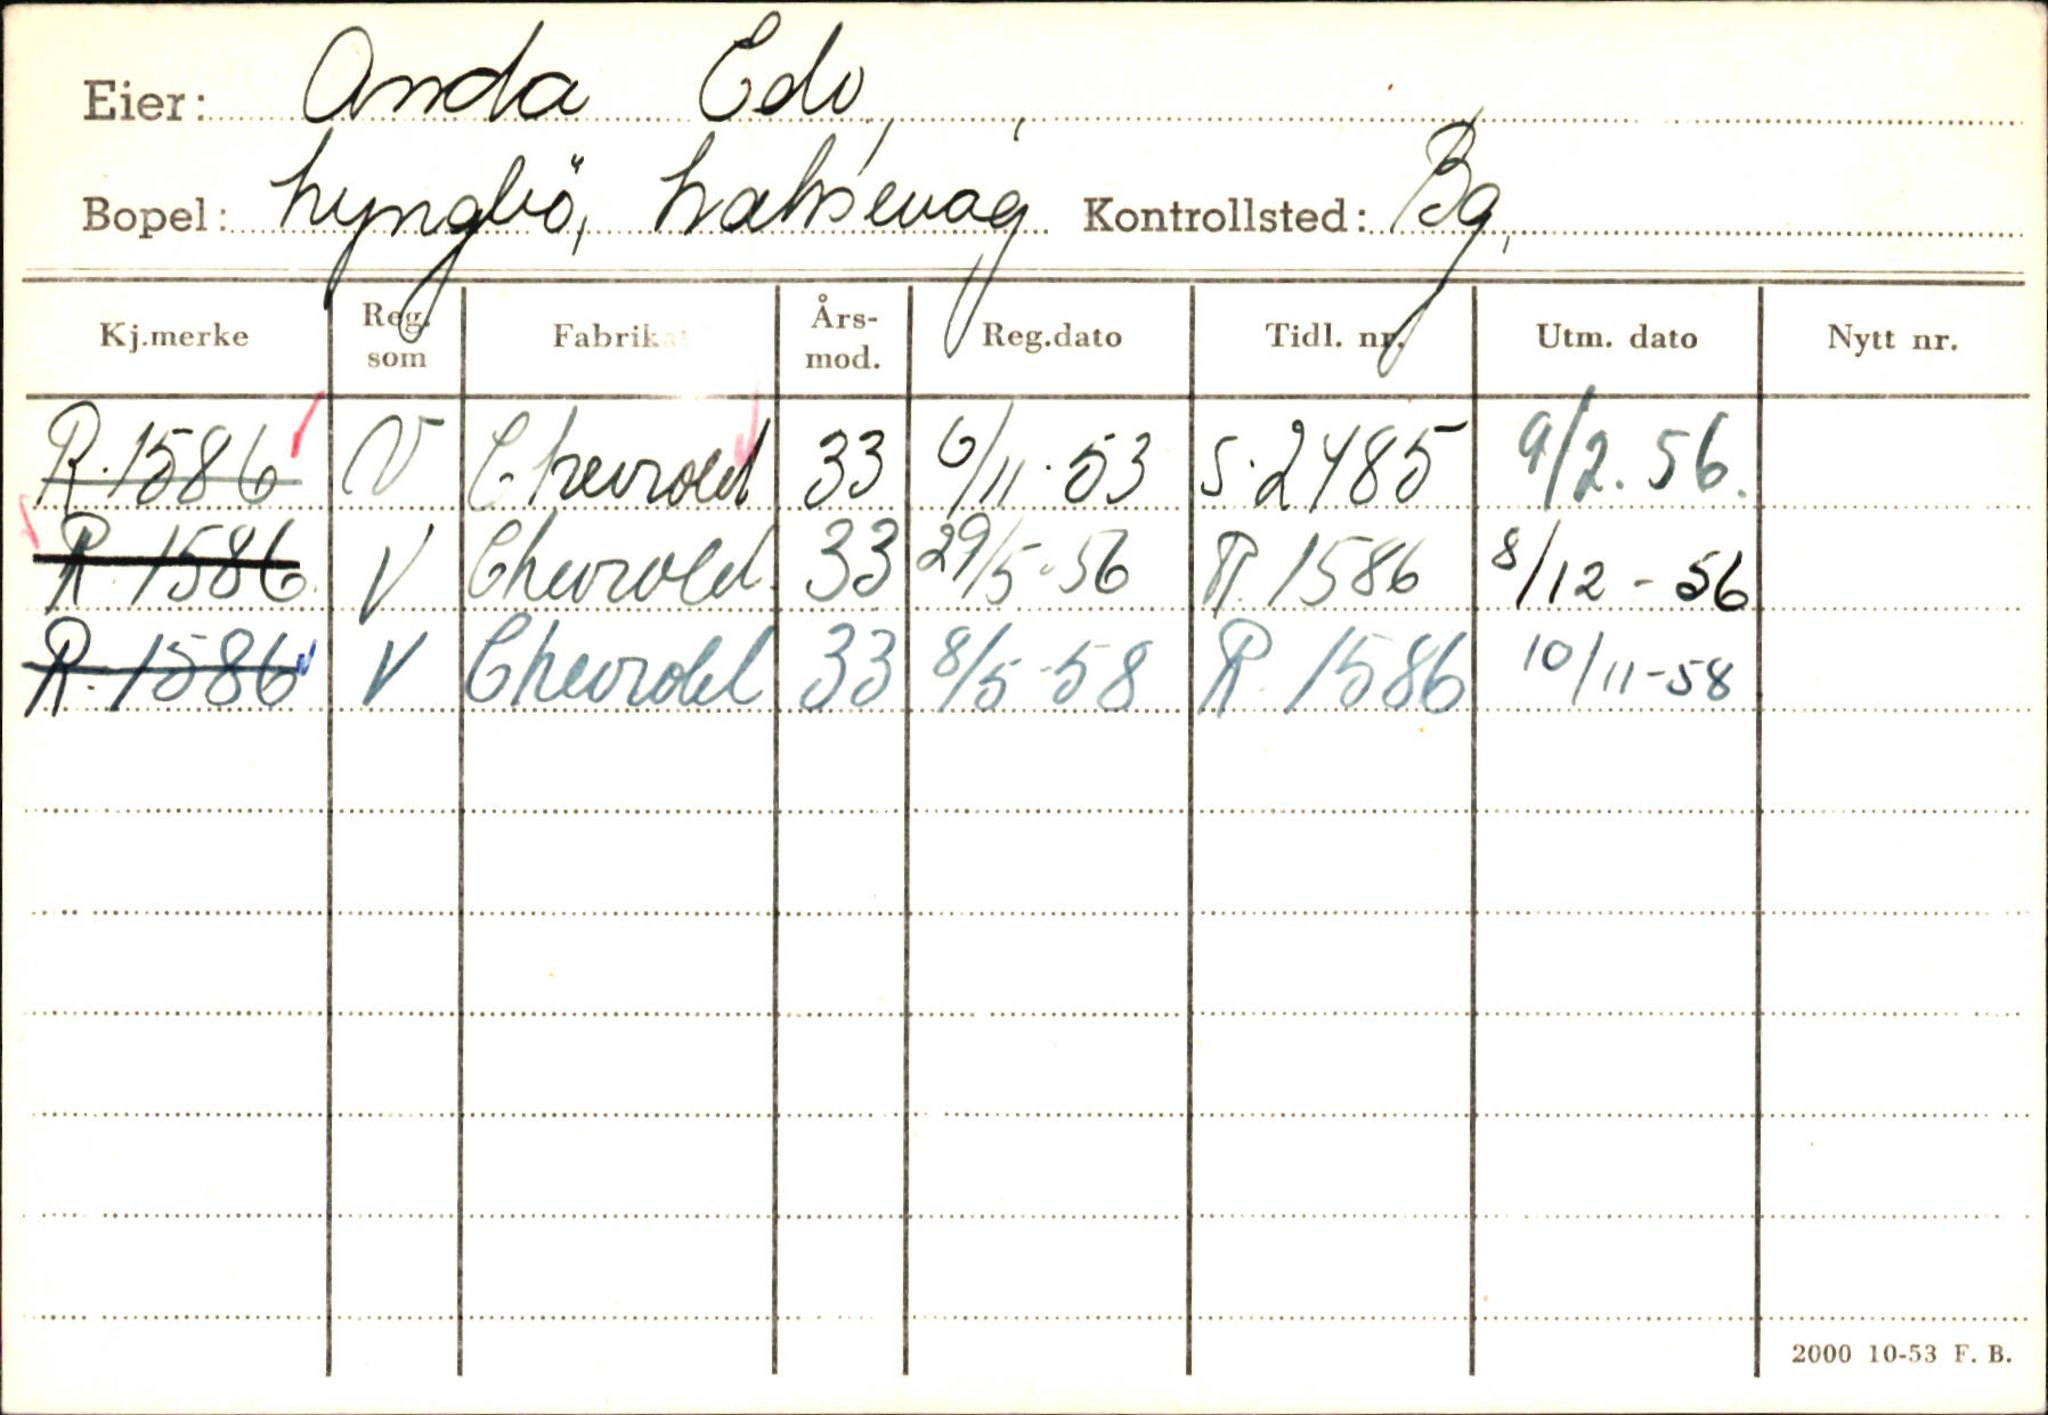 Eier: Anda Edv,
Bopel: Lyngbö, Laksevåg Kontrollsted: Bg,
Kj.merke Reg. som Fabrikat Års- mod. Reg.dato Tidl. nr. Utm. dato Nytt nr.
R. 1586 V Chevrolet 33 6/11.53 S.2485 9/2.56.
R. 1586 V Chevrolet 33 29/5-56 R. 1586 8/12-56
R. 1586 V Chevrolet 33 8/5-58 R. 1586 10/11-58
2000 10-53 F. B.